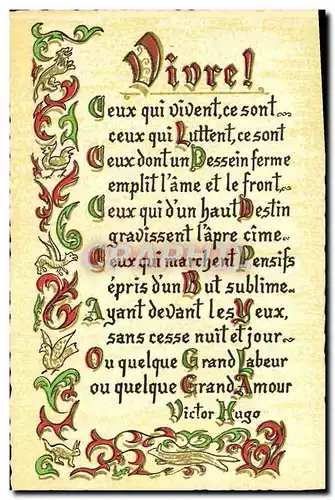 Vivre!
Ceux qui vivent, ce sont..
ceux qui Luttent, ce sont
Ceux dont un Dessein ferme
emplit l'âme et le front..
Ceux qui d'un haut Destin
gravissent l'âpre cîme..
Ceux qui marchent Pensifs
épris d'un But sublime..
Ayant devant les Yeux,
sans cesse nuit et jour..
Ou quelque Grand Labeur
ou quelque Grand Amour
Victor Hugo